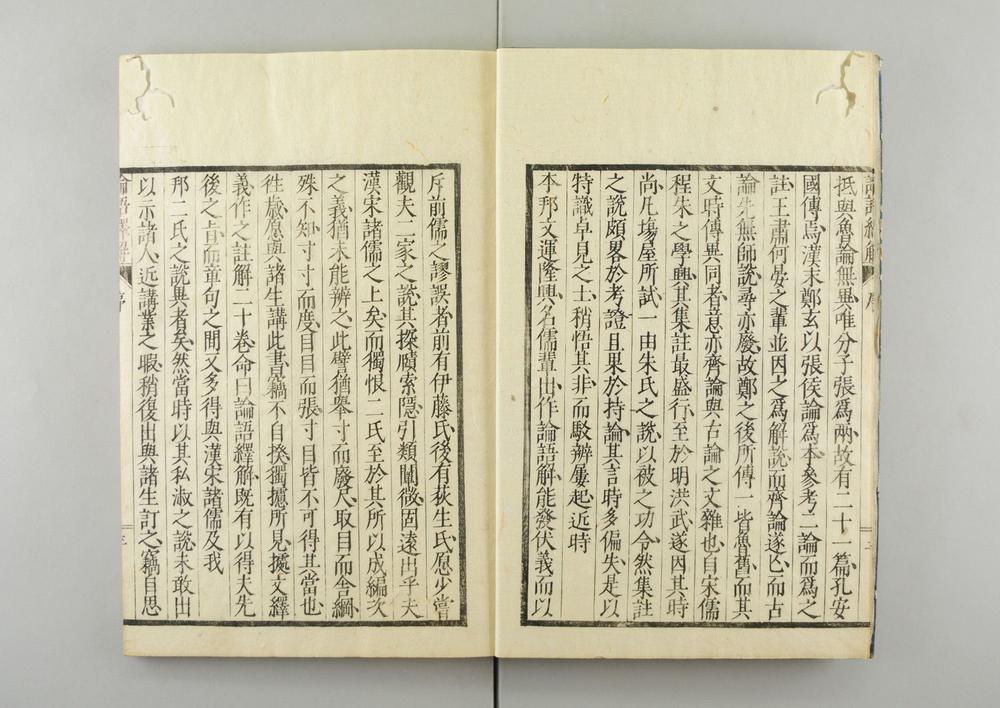 抵與魯論無異、唯分子張爲兩、故有二十一篇、孔安
國傳焉、漢末鄭玄以張侯論爲本、參考二論而爲之
註、王肅何晏之輩並因之爲解說、而齊論遂亡、而古
論先無師說、尋亦廢、故鄭之後所傳一皆魯舊、而其
文時傳異同者、意亦齊論與古論之文雜也、自宋儒
程朱之學興、其集註最盛行、至於明洪武、遂因其時
尚、凡場屋所試、一由朱氏之說、以被之功令、然集註
之說、頗畧於考證、且果於持論、其言時多偏失、是以
特識卓見之士、稍悟其非、而駁辨屢起、近時
本邦文運隆興、名儒輩出、作論語解、能發伏義、而以
斥前儒之謬誤者、前有伊藤氏、後有荻生氏、愿少嘗
觀夫二家之說、其探賾索隱、引類闡微、固遠出乎夫
漢宋諸儒之上矣、而獨恨二氏至於其所以成編次
之義、猶未能辨之、此譬猶舉寸而廢尺、取目而舍綱、
殊不知寸寸而度、目目而張、寸目皆不可得其當也、
徃歲愿與諸生講此書、竊不自揆、獨攄所見、據文繹
義、作之註解二十卷、命曰論語繹解、既有以得夫先
後之旨、而章句之間、又多得與漢宋諸儒及我
邦二氏之說異者矣、然當時以其私淑之說、未敢出
以示諸人、近講業之暇、稍復出與諸生訂之、竊自思
論語繹解 序